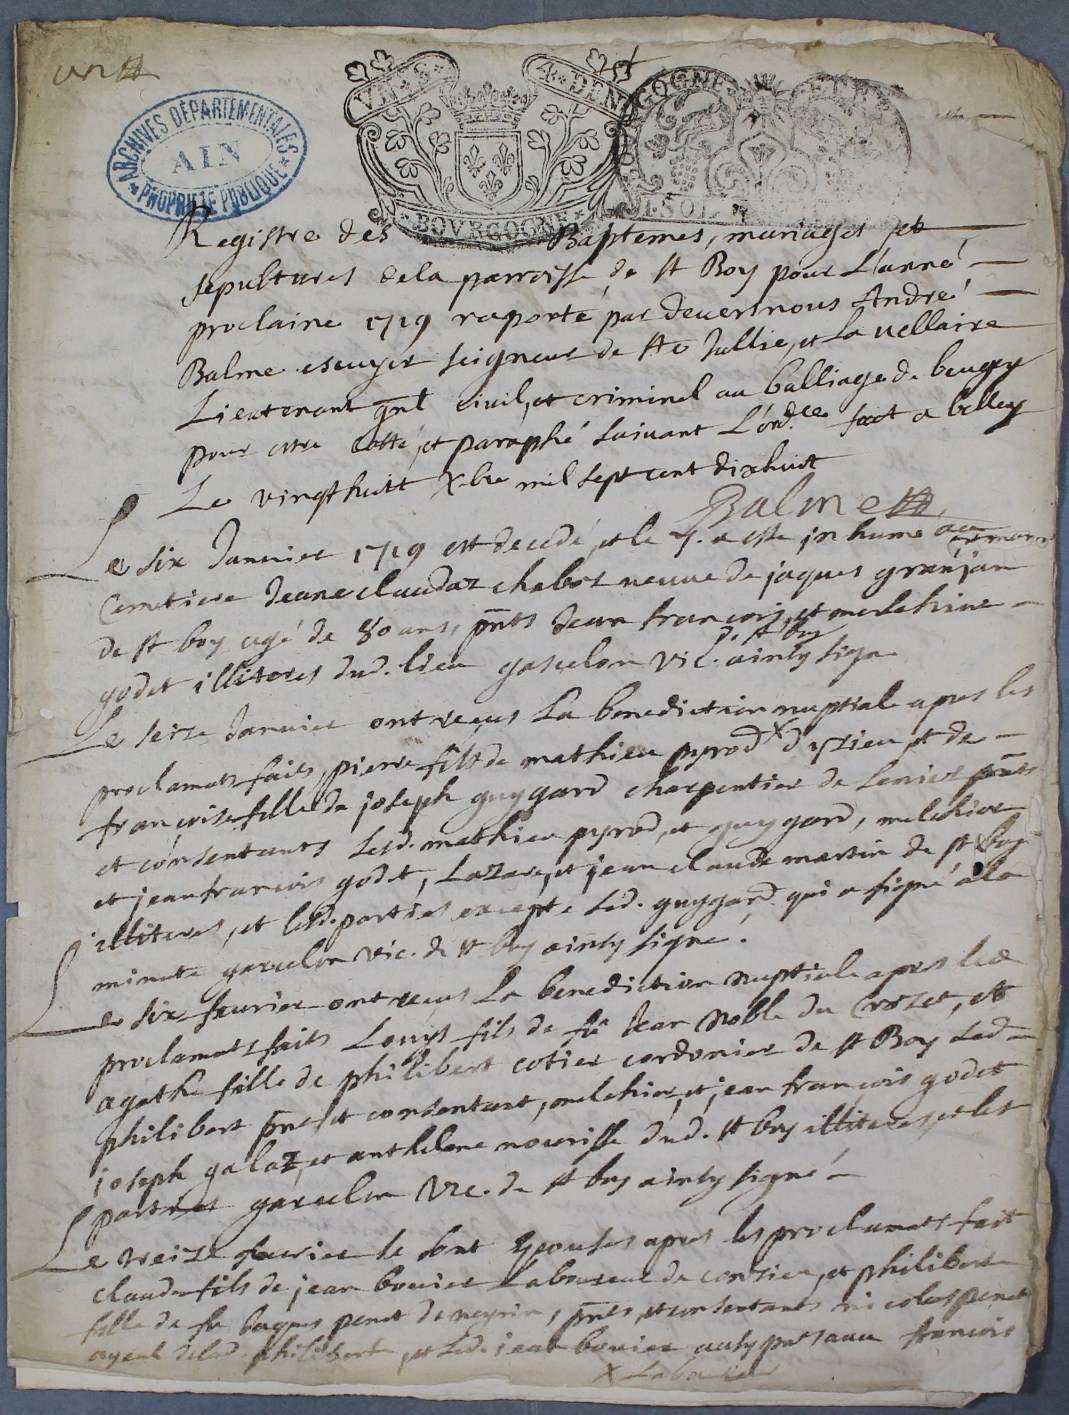 un
ARCHIVES DÉPARTEMENTALES
AIN
PROPRIÉTÉ PUBLIQUE
VN S. 4. DEN
BOVRGOGNE
GOGNE
I. SOL
Registre des Baptemes, mariages et
sepultures de la parroisse de st Boy pour L'anné
proclaine 1719 raporté par devers nous André
Balme escuyer seigneur de Ste Jullie, et la vellaire
Lieutenant gnl civil, et criminel au balliage de beugey
pour estre cotté, et paraphé suivant L'ord.ce fait a belley
Le vingt huitt Xbre mil sept cent dixhuit
Balme
Le six Janvier 1719 est decedé, et le 7. a esté inhumé au
Cemetiere Jeane claudaz chabot veuve de jaques granjan
de st boy agé de 80 ans, pnts Jean francois, et melchior
godet illiteres dud. lieu gavelon vic. de st boy ainsy signé
Le seize Janvier ont reçus La benediction nuptiale apres les
proclamats faits, pierre fils de mathieu pyrod X d'yzieu, et de
françoise fille de joseph guygard charpentier de pnts
et consentants Lesd. mathieu pyrod, et guygard, melchior
et jean francois godet, Lazare, et jean claude martin de st boy
illiteres, et lesd. parties excepte Led. guygard qui a signé a la
minute gavelon vic. de st boy ainsy signé.
Le six fevrier ont reçus La benediction nuptiale apres les
proclamats faits Louys fils de fû Jean Noble du Crozet, et
agathe fille de philibert cotier cordonier de st Boy Led.
philibert pnt et consentant, melchior, et jean françois godet
joseph galaz, et anthelme nourisse dud. st boy illiteres, et les
parties gavelon vic. de st boy ainsy signé
Le treize fevrier se sont Epousés apres les proclamats fait
claude fils de jean bovier Laboureur de conzieu, et philiberte
fille de fû penet de peyrin, pnts, et consentants nicolas penet
ayeul de lad. philiberte, et Led. jean bovier aussy pnt francois
X Laboureur